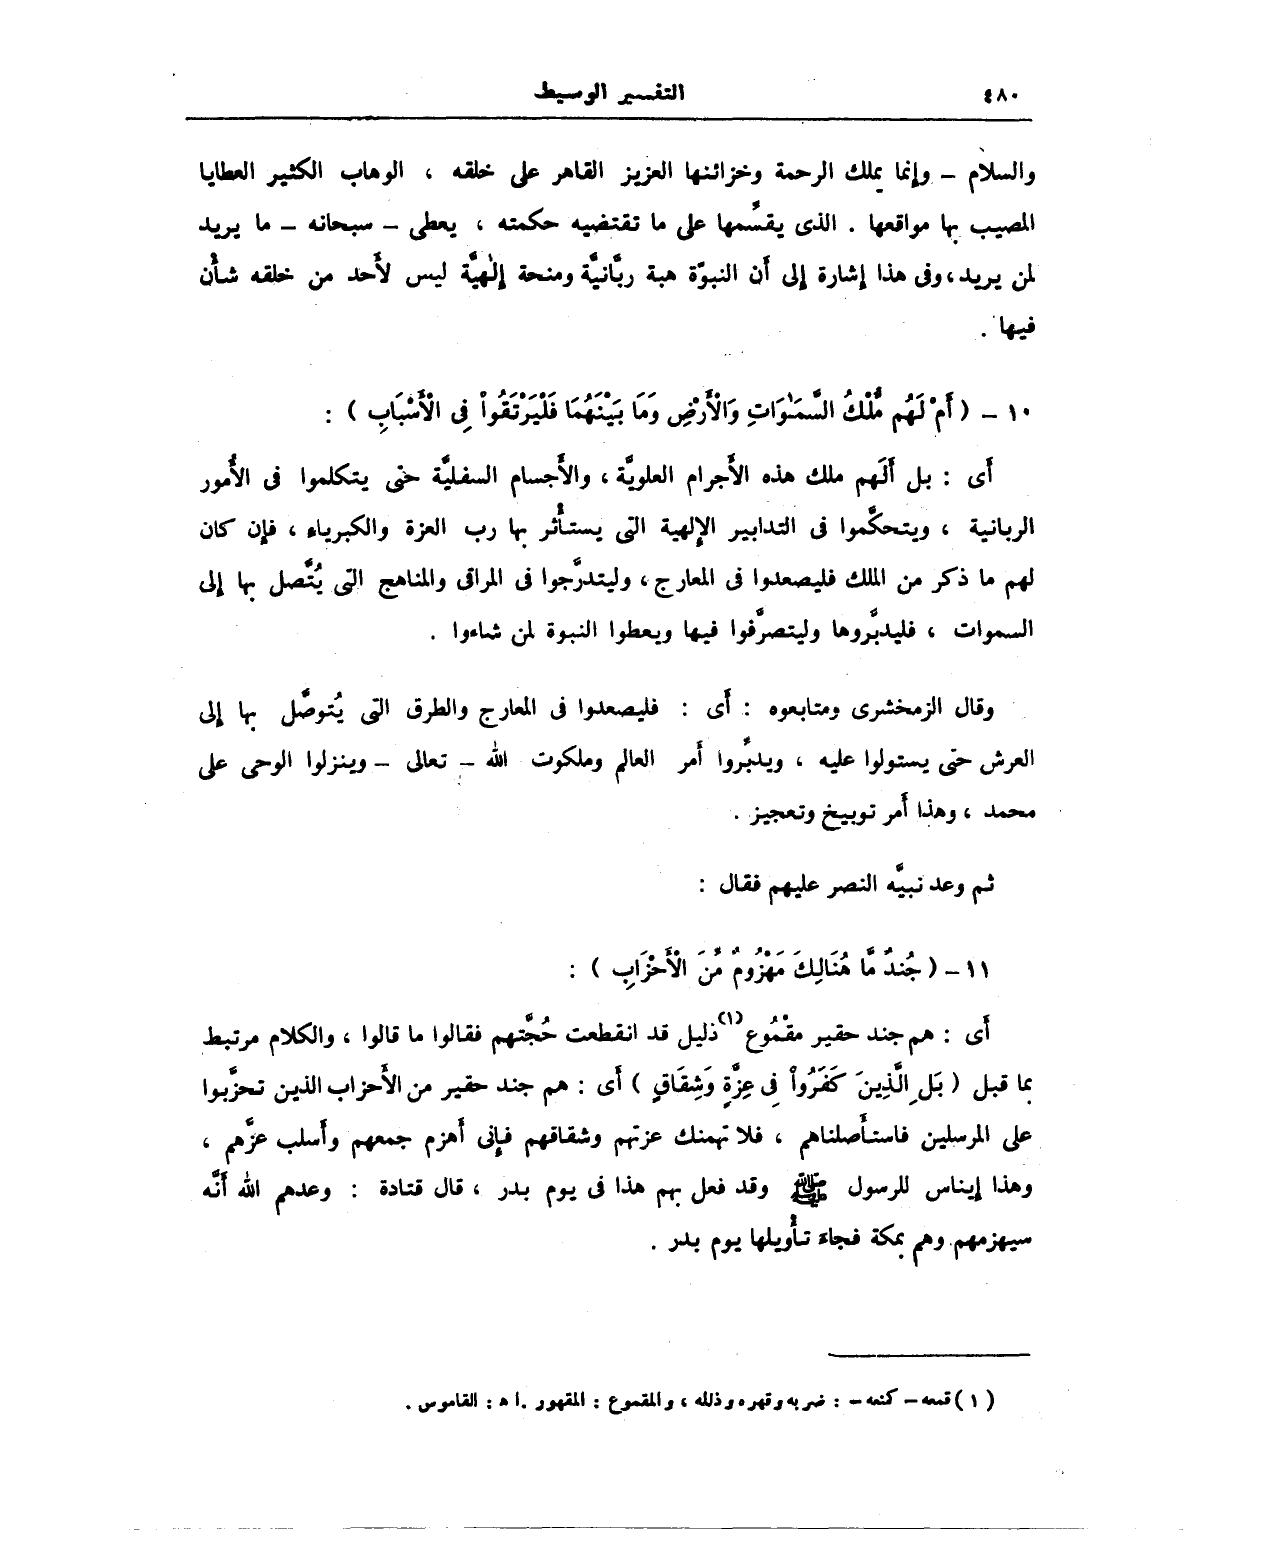 ٤٨٠
التفسير الوسيط
والسلام – وإنما يملك الرحمة وخزائنها العزيز القاهر على خلقه ، الوهاب الكثير العطايا
المصيب بها مواقعها . الذى يقسِّمها على ما تقتضيه حكمته ، يعطى – سبحانه – ما يريد
لمن يريد ، وفى هذا إشارة إلى أن النبوّة هبة ربَّانيَّة ومنحة إلٰهيَّة ليس لأَحد من خلقه شأْن
فيها .
١٠ – ( أَمْ لَهُم مُّلْكُ السَّمَٰوَاتِ وَالْأَرْضِ وَمَا بَيْنَهُمَا فَلْيَرْتَقُواْ فِى الْأَسْبَابِ ) :
أَى : بل أَلَهم ملك هذه الأَجرام العلويَّة ، والأَجسام السفليَّة حتى يتكلموا فى الأُمور
الربانية ، ويتحكَّموا فى التدابير الإِلهية التى يستأْثر بها رب العزة والكبرياء ، فإن كان
لهم ما ذكر من الملك فليصعدوا فى المعارج ، وليتدرَّجوا فى المراقى والمناهج التى يُتَّصل بها إلى
السموات ، فليدبِّروها وليتصرَّفوا فيها ويعطوا النبوة لمن شاءوا .
وقال الزمخشرى ومتابعوه : أَى : فليصعدوا فى المعارج والطرق التى يُتوصَّل بها إلى
العرش حتى يستولوا عليه ، ويدبِّروا أَمر العالم وملكوت الله – تعالى – وينزلوا الوحى على
محمد ، وهذا أَمر توبيخ وتعجيز .
ثم وعد نبيَّه النصر عليهم فقال :
١١ – ( جُندٌ مَّا هُنَالِكَ مَهْزُومٌ مِّنَ الْأَحْزَابِ ) :
أَى : هم جند حقير مقْمُوع(١) ذليل قد انقطعت حُجَّتهم فقالوا ما قالوا ، والكلام مرتبط
بما قبل ( بَلِ الَّذِينَ كَفَرُواْ فِى عِزَّةٍ وَشِقَاقٍ ) أَى : هم جند حقير من الأَحزاب الذين تحزَّبوا
على المرسلين فاستأْصلناهم ، فلا تهمنك عزتهم وشقاقهم فإنى أَهزم جمعهم وأَسلب عزَّهم ،
وهذا إيناس للرسول ﷺ وقد فعل بهم هذا فى يوم بدر ، قال قتادة : وعدهم الله أَنَّه
سيهزمهم وهم بمكة فجاءَ تأْويلها يوم بدر .
(١) قمعه – كمنعه – : ضربه وقهره وذلله ، والمقموع : المقهور . اهـ : القاموس .